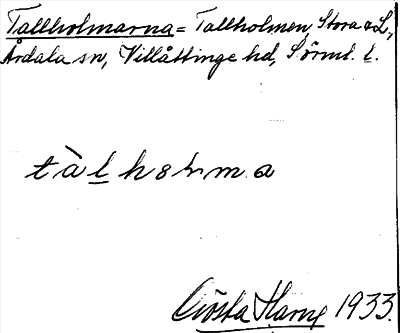 Tallholmarna = Tallholmen, Stora & L.,
Årdala sn, Villåttinge hd, Sörml. l.
tàlhɷrma
Gösta Harng 1933.